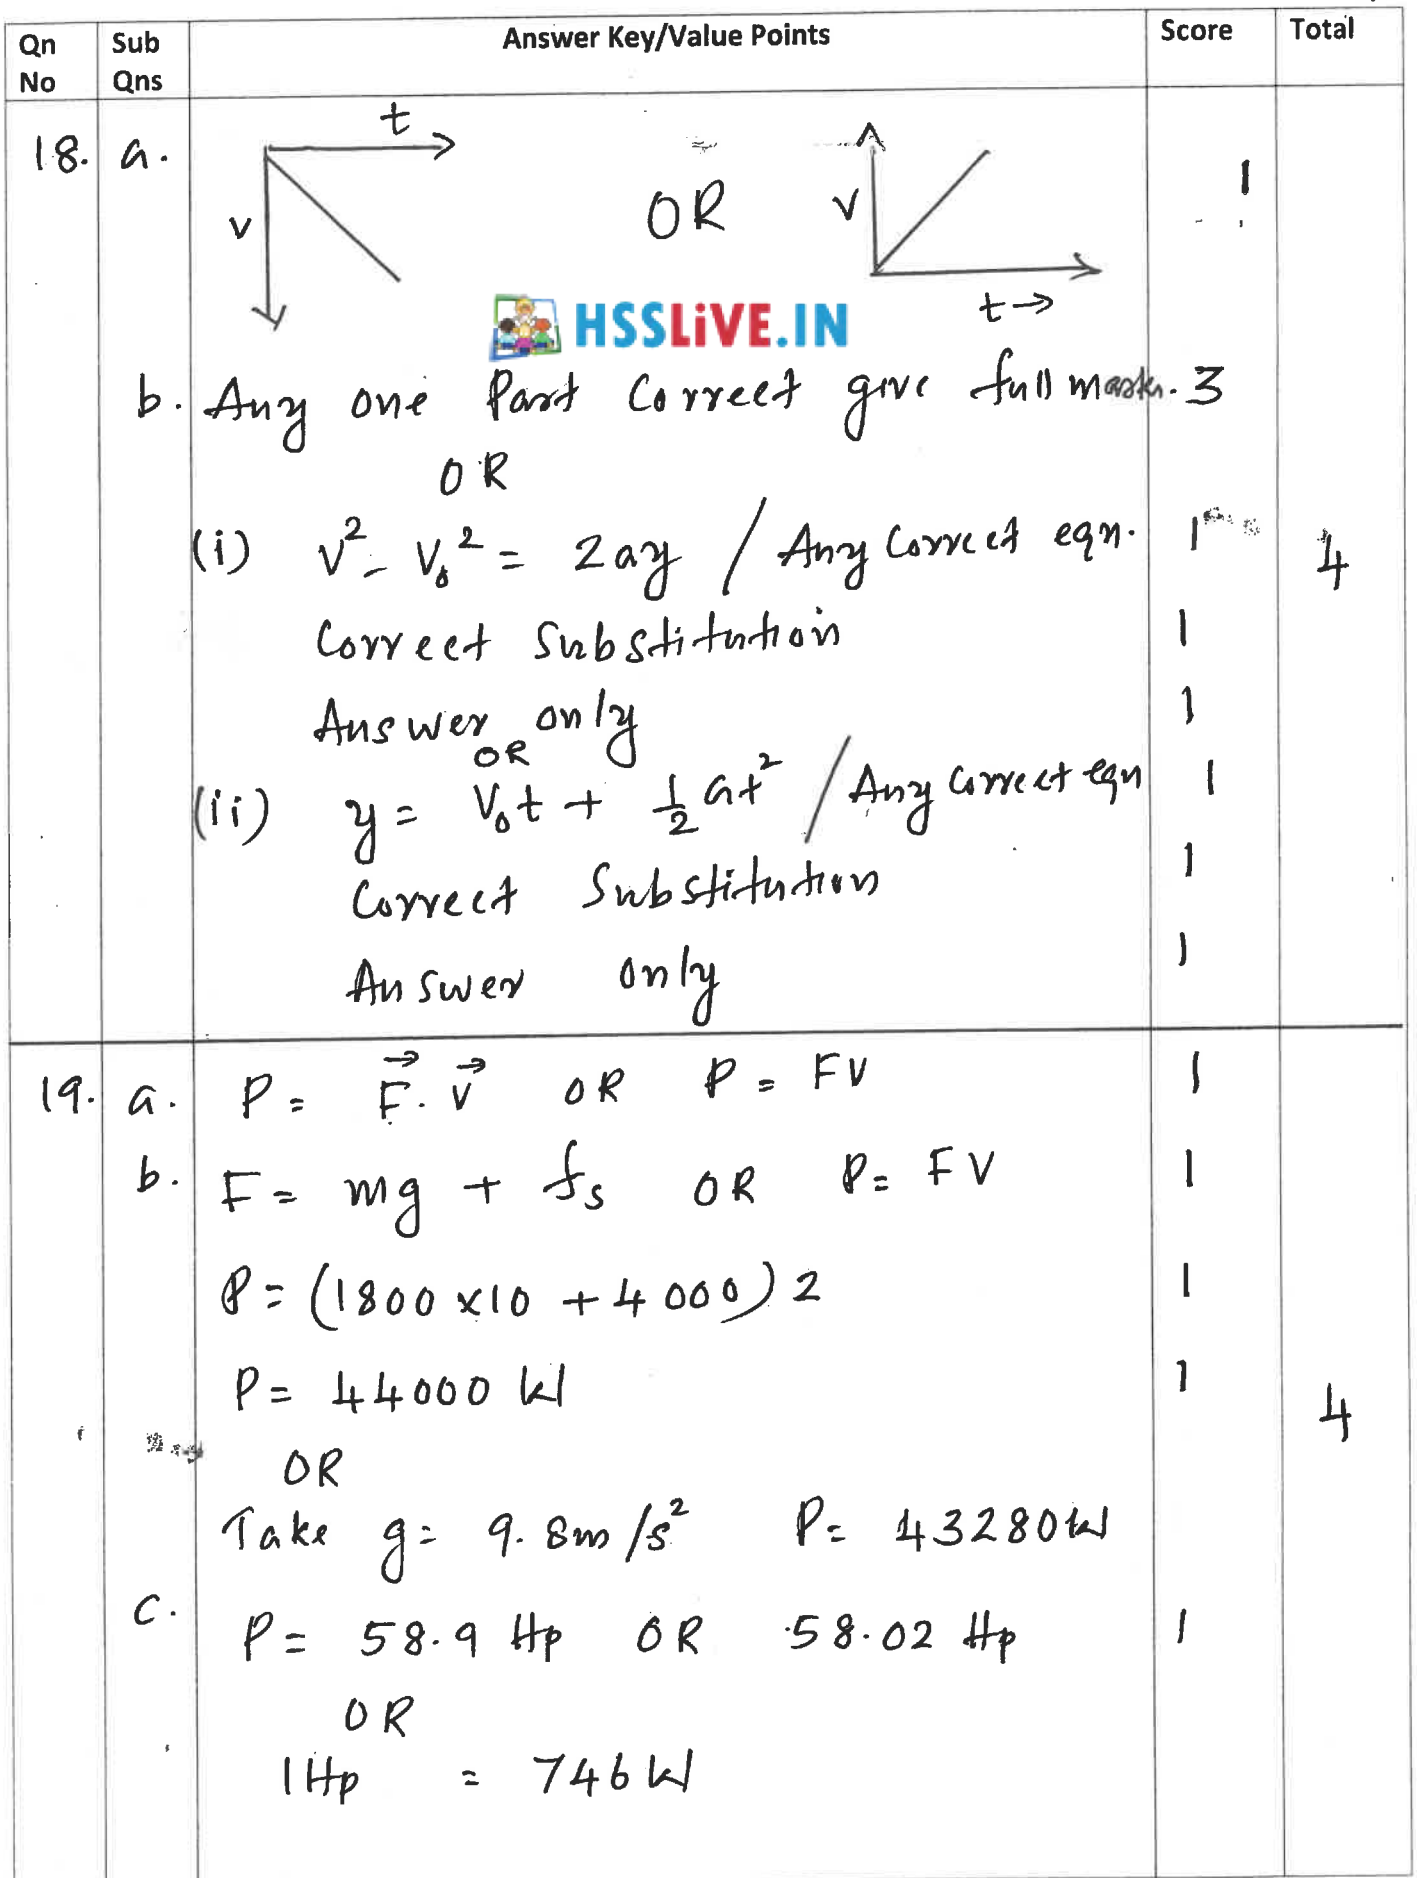 Qn No Sub Qns Answer Key/Value Points Score Total
18. a. t v OR v t→ 1
HSSLiVE.IN
b. Any one Part Correct give full marks. 3
OR
(i) v² - v₀² = 2ay / Any Correct eqn. 1 4
Correct Substitution 1
Answer only 1
OR
(ii) y = V₀t + ½at² / Any Correct eqn 1
Correct Substitution 1
Answer only 1
19. a. P = F⃗. v⃗ OR P = FV 1
b. F = mg + fs OR P = FV 1
P = (1800 x10 + 4000) 2 1
P = 44000 W 1
4
OR
Take g = 9.8m/s² P = 43280W
c. P = 58.9 Hp OR 58.02 Hp 1
OR
1Hp = 746W